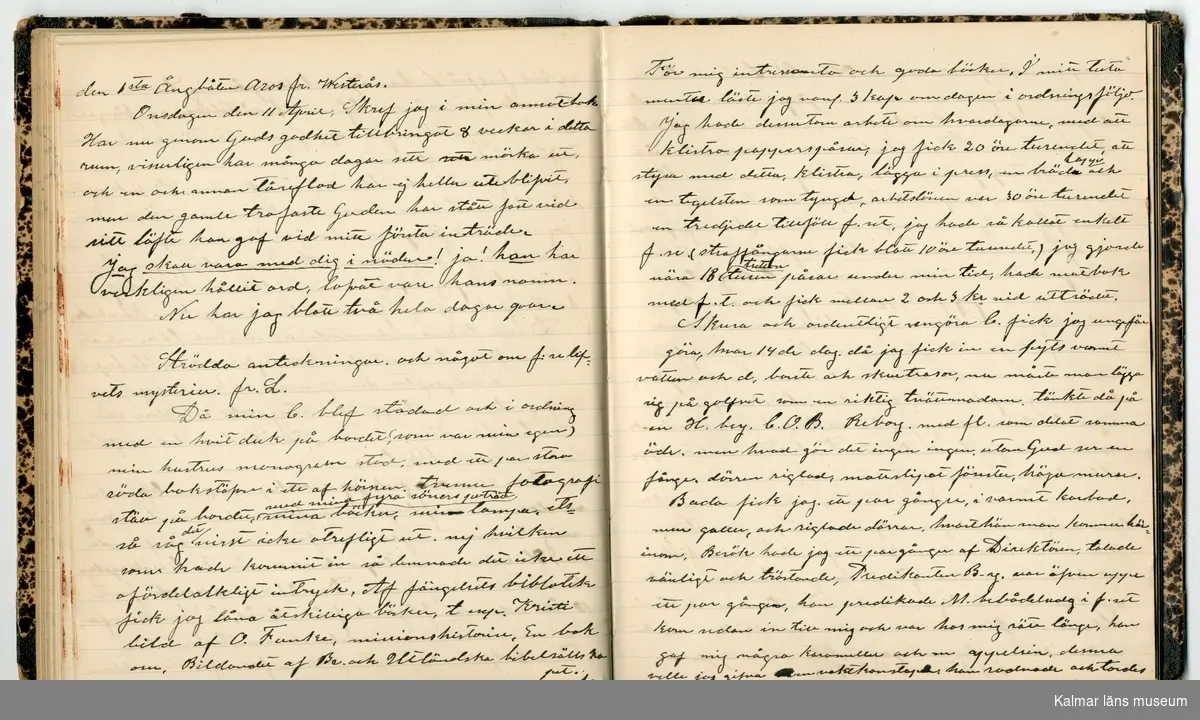 den 1sta Ångbåten Aros fr. Westerås.
Onsdagen den 11 April, Skref jag i min annotbok
Har nu genom Guds godhet tillbringat 8 veckor i detta
rum, visserligen har många dagar sett mörka ut,
och en och annan tåreflod har ej heller uteblifvit,
men den gamle trofaste Guden har stått fast vid
sitt löfte han gaf vid mitt första inträde.
Jag skall vara med dig i nöden! ja! han har
verkligen hållit ord, lofvat vare hans namn.
Nu har jag blott två hela dagar qvar.
Strödda anteckningar. och något om f:relif-
vets mysterier. fr. L.
Då min C. blef städad och i ordning
med en hvit duk på bordet (som var min egen)
min hustrus monogram stod, med ett par stora
röda bokstäfver i ett af hörnen. tvenne fotografi
med mina fyra söners porträt
stäo på bordet, mina böcker, min lampa, etc
så såg det visst icke otrefligt ut. nej hvilken
som hade kommit in så lemnade det icke ett
ofördelaktigt intryck, Af fängelsets bibliotek
fick jag låna åtskilliga böcker, t. exp. Kristi
bild af O. Funke, missionshistorien, En bok
om, Bildandet af Br. och Utländska bibelsälls ka
pet.
För mig intressanta och goda böcker, I mitt testa
mente läste jag vanl. 3 kap om dagen i ordningsföljd.
Jag hade dessutom arbete om hvardagarne, med att
klistra papperspåsar, jag fick 20 öre tusendet, att
styra med detta, klistra, lägga i press, en bräd lapp och
en tegelsten som tyngd, arbetslönen var 30 öre tusendet
en tredjedel tillföll f. st, jag hade så kallat enkelt
f.se (straffångarne fick blott 10 öre tusendet,) jag gjorde
nära 18 tusen påsar under min tid, hade motbok
med f.t. och fick mellan 2 och 3 kr vid utträdet.
Skura och ordentligt rengöra C. fick jag ungefär
göra, hvar 14de dag. då jag fick in en pyts varmt
vatten och d, borste och skurtrasor, nu måste man lägga
sig på golfvet som en riktig tvättmadam, tänkte då på
en H. berg. C. O. B. Reborg. med fl. som delat samma
öde. men hvad gör det ingen ingen, utom Gud ser en
fånge. dörren riglad, mattslipat fönster, höga murar.
Bada fick jag ett par gånger, i varmt karbad,
men galler, och riglade dörrar, hvart hän man kommer här-
inom, Besök hade jag ett par gånger af Direktören, talade
vänligt och tröstande, Predikanten B-g. var äfven uppe
ett par gånger, han predikade M. bebådelsedag i f. set
kom sedan in till mig och var hos mig rätt länge, han
gaf mig några karameller och en appelsin, denna
ville jag gifva vaktkonstapel, han rodnade och tordes
Kalmar läns museum